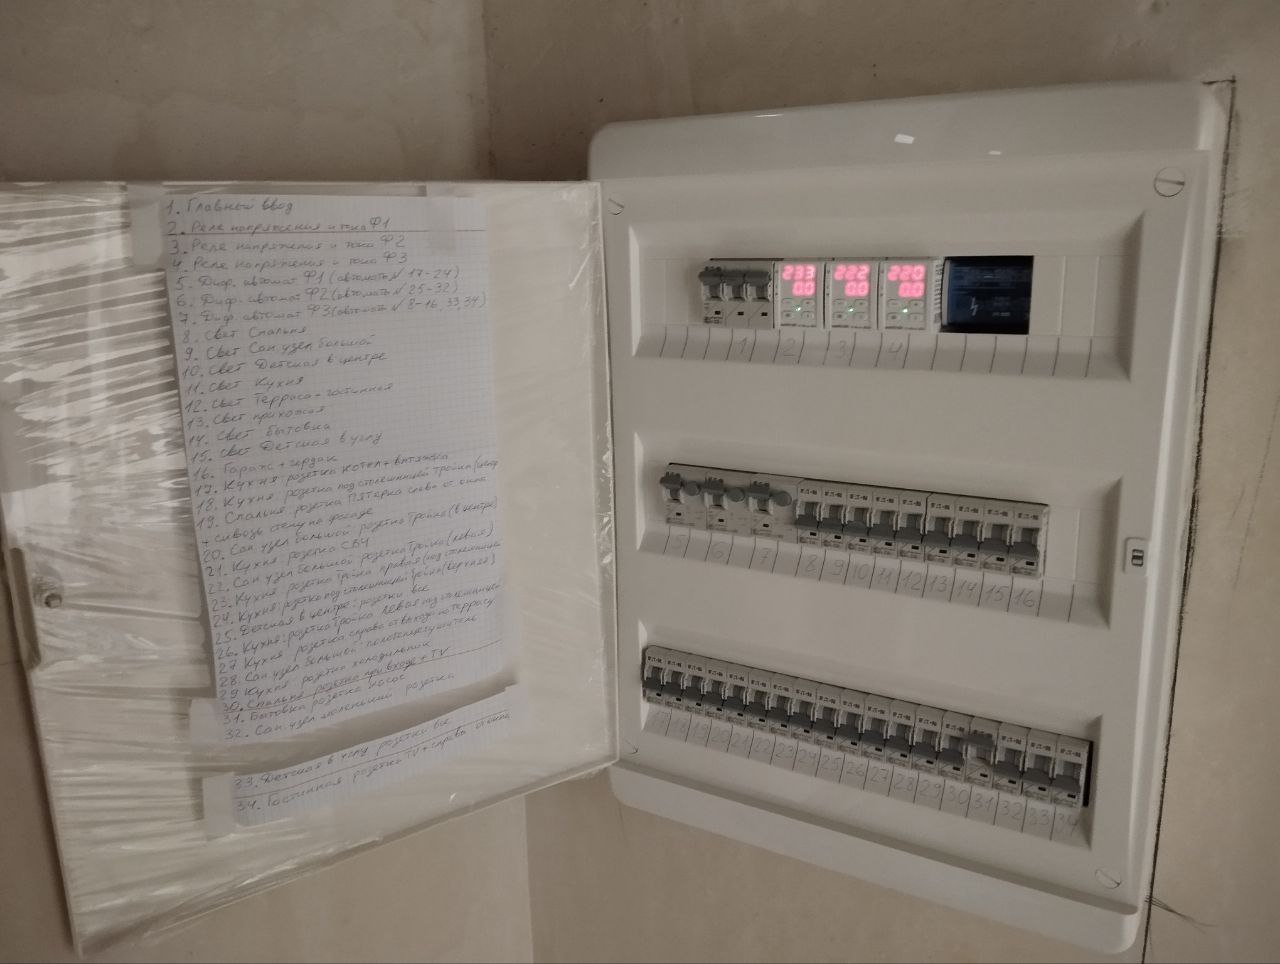 1. Главный ввод
2. Реле напряжения и тока Ф1
3. Реле напряжения и тока Ф2
4. Реле напряжения и тока Ф3
5. Диф. автомат Ф1 (автоматы № 17-24)
6. Диф. автомат Ф2 (автоматы № 25-32)
7. Диф. автомат Ф3 (автоматы № 8-16, 33, 34)
8. Свет Спальня
9. Свет Сан. узел большой
10. Свет Детская в центре
11. Свет Кухня
12. Свет Терраса + гостинная
13. Свет прихожая
14. Свет бытовка
15. Свет Детская в углу
16. Гараж + чердак
17. Кухня: розетка котел + вытяжка
18. Кухня розетка под столешницей тройка (центр
19. Спальня розетка пятерка слева от окна
+ сквозь стену на фасаде
20. Сан. узел большой: розетка тройка (в центре)
21. Кухня: розетка СВЧ
22. Сан. узел большой розетка тройка (левая)
23. Кухня: розетка тройка правая (под столешницей
24. Кухня: розетка под столешницей тройка (верхняя)
25. Детская в центре: розетки все
26. Кухня: розетка тройка левая под столешницей
27 Кухня розетка справа от выхода на террасу
28. Сан. узел большой - полотенцесушитель
29 Кухня: розетка холодильник
30. Спальня розетка при входе + TV
31. Бытовка розетка насос
32. Сан. узел маленький розетка
33. Детская в углу розетки все
34. Гостинная розетка TV + справа от окна
233 222 220
0.0 0.0 0.0
1 2 3 4
5 6 7 8 9 10 11 12 13 14 15 16
17 18 19 20 21 22 23 24 25 26 27 28 29 30 31 32 33 34